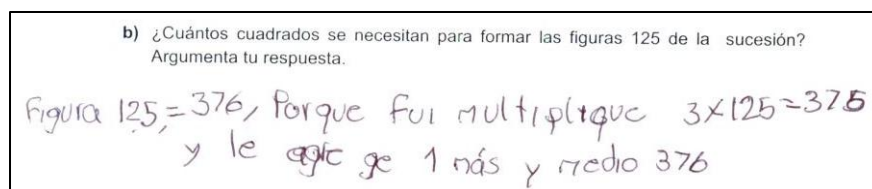 b) ¿Cuántos cuadrados se necesitan para formar las figuras 125 de la sucesión?
Argumenta tu respuesta.
Figura 125,=376, Porque fui multiplique 3x125=375
y le agre ge 1 más y medio 376